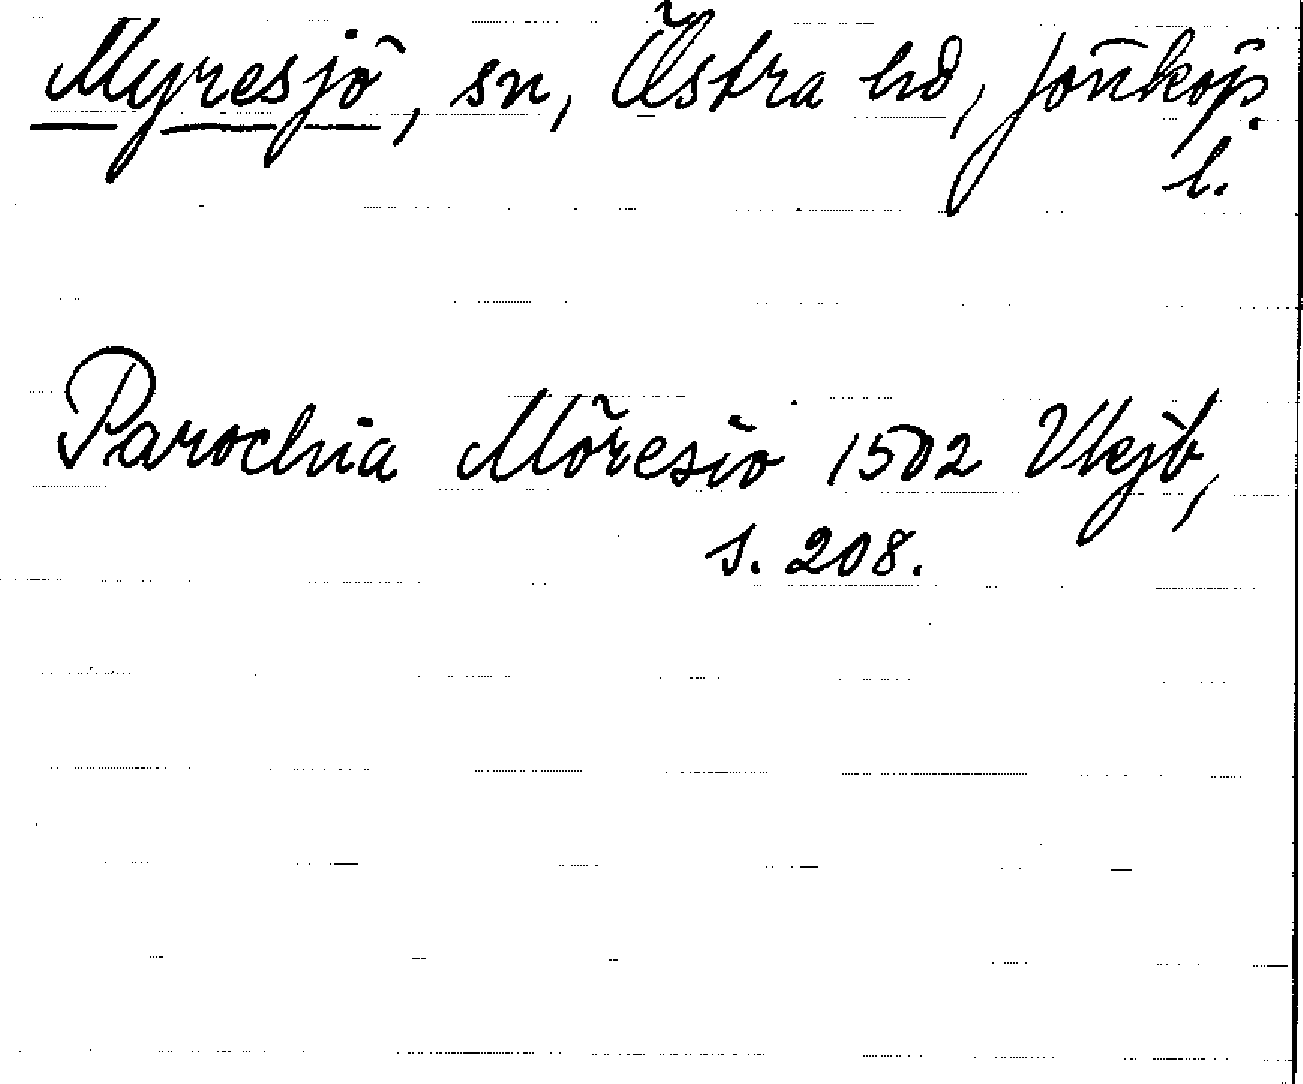 Myresjö, sn, Östra hd, Jönköp.
l.
Parochia Möresio 1502 Vkjb,
s. 208.